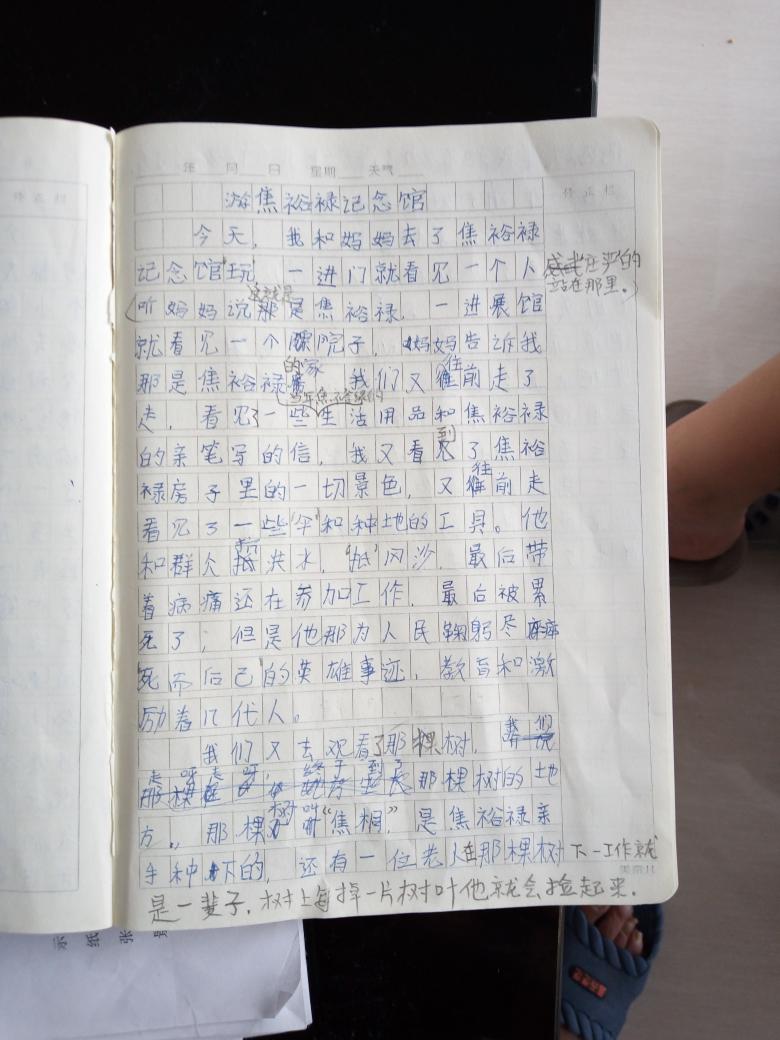 年 月 日 星期 天气
游焦裕禄记念馆
今天，我和妈妈去了焦裕禄
记念馆玩，一进门就看见一个人庄严的
站在那里。
（听妈妈说这就是焦裕禄，一进展馆
就看见一个院子，妈妈告诉我
那是焦裕禄的家，我们又往前走了
走，看见了一些当年焦裕禄的生活用品和焦裕禄
的亲笔写的信，我又看到了焦裕
禄房子里的一切景色，又往前走
看见了一些伞和种地的工具。他
和群众抗洪水，“抵”风沙，最后带
着病痛还在参加工作，最后被累
死了，但是他那为人民鞠躬尽瘁
死而后已的英雄事迹，教育和激
励着几代人。
我们又去观看了那棵树，我们
走呀走呀，终于到了那棵树的地
方，那棵树叫“焦桐”，是焦裕禄亲
手种下的，还有一位老人在那棵树下一工作就
是一辈子，树上每掉一片树叶他就会捡起来。